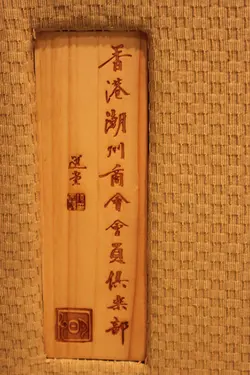 香港潮州商會會員俱樂部